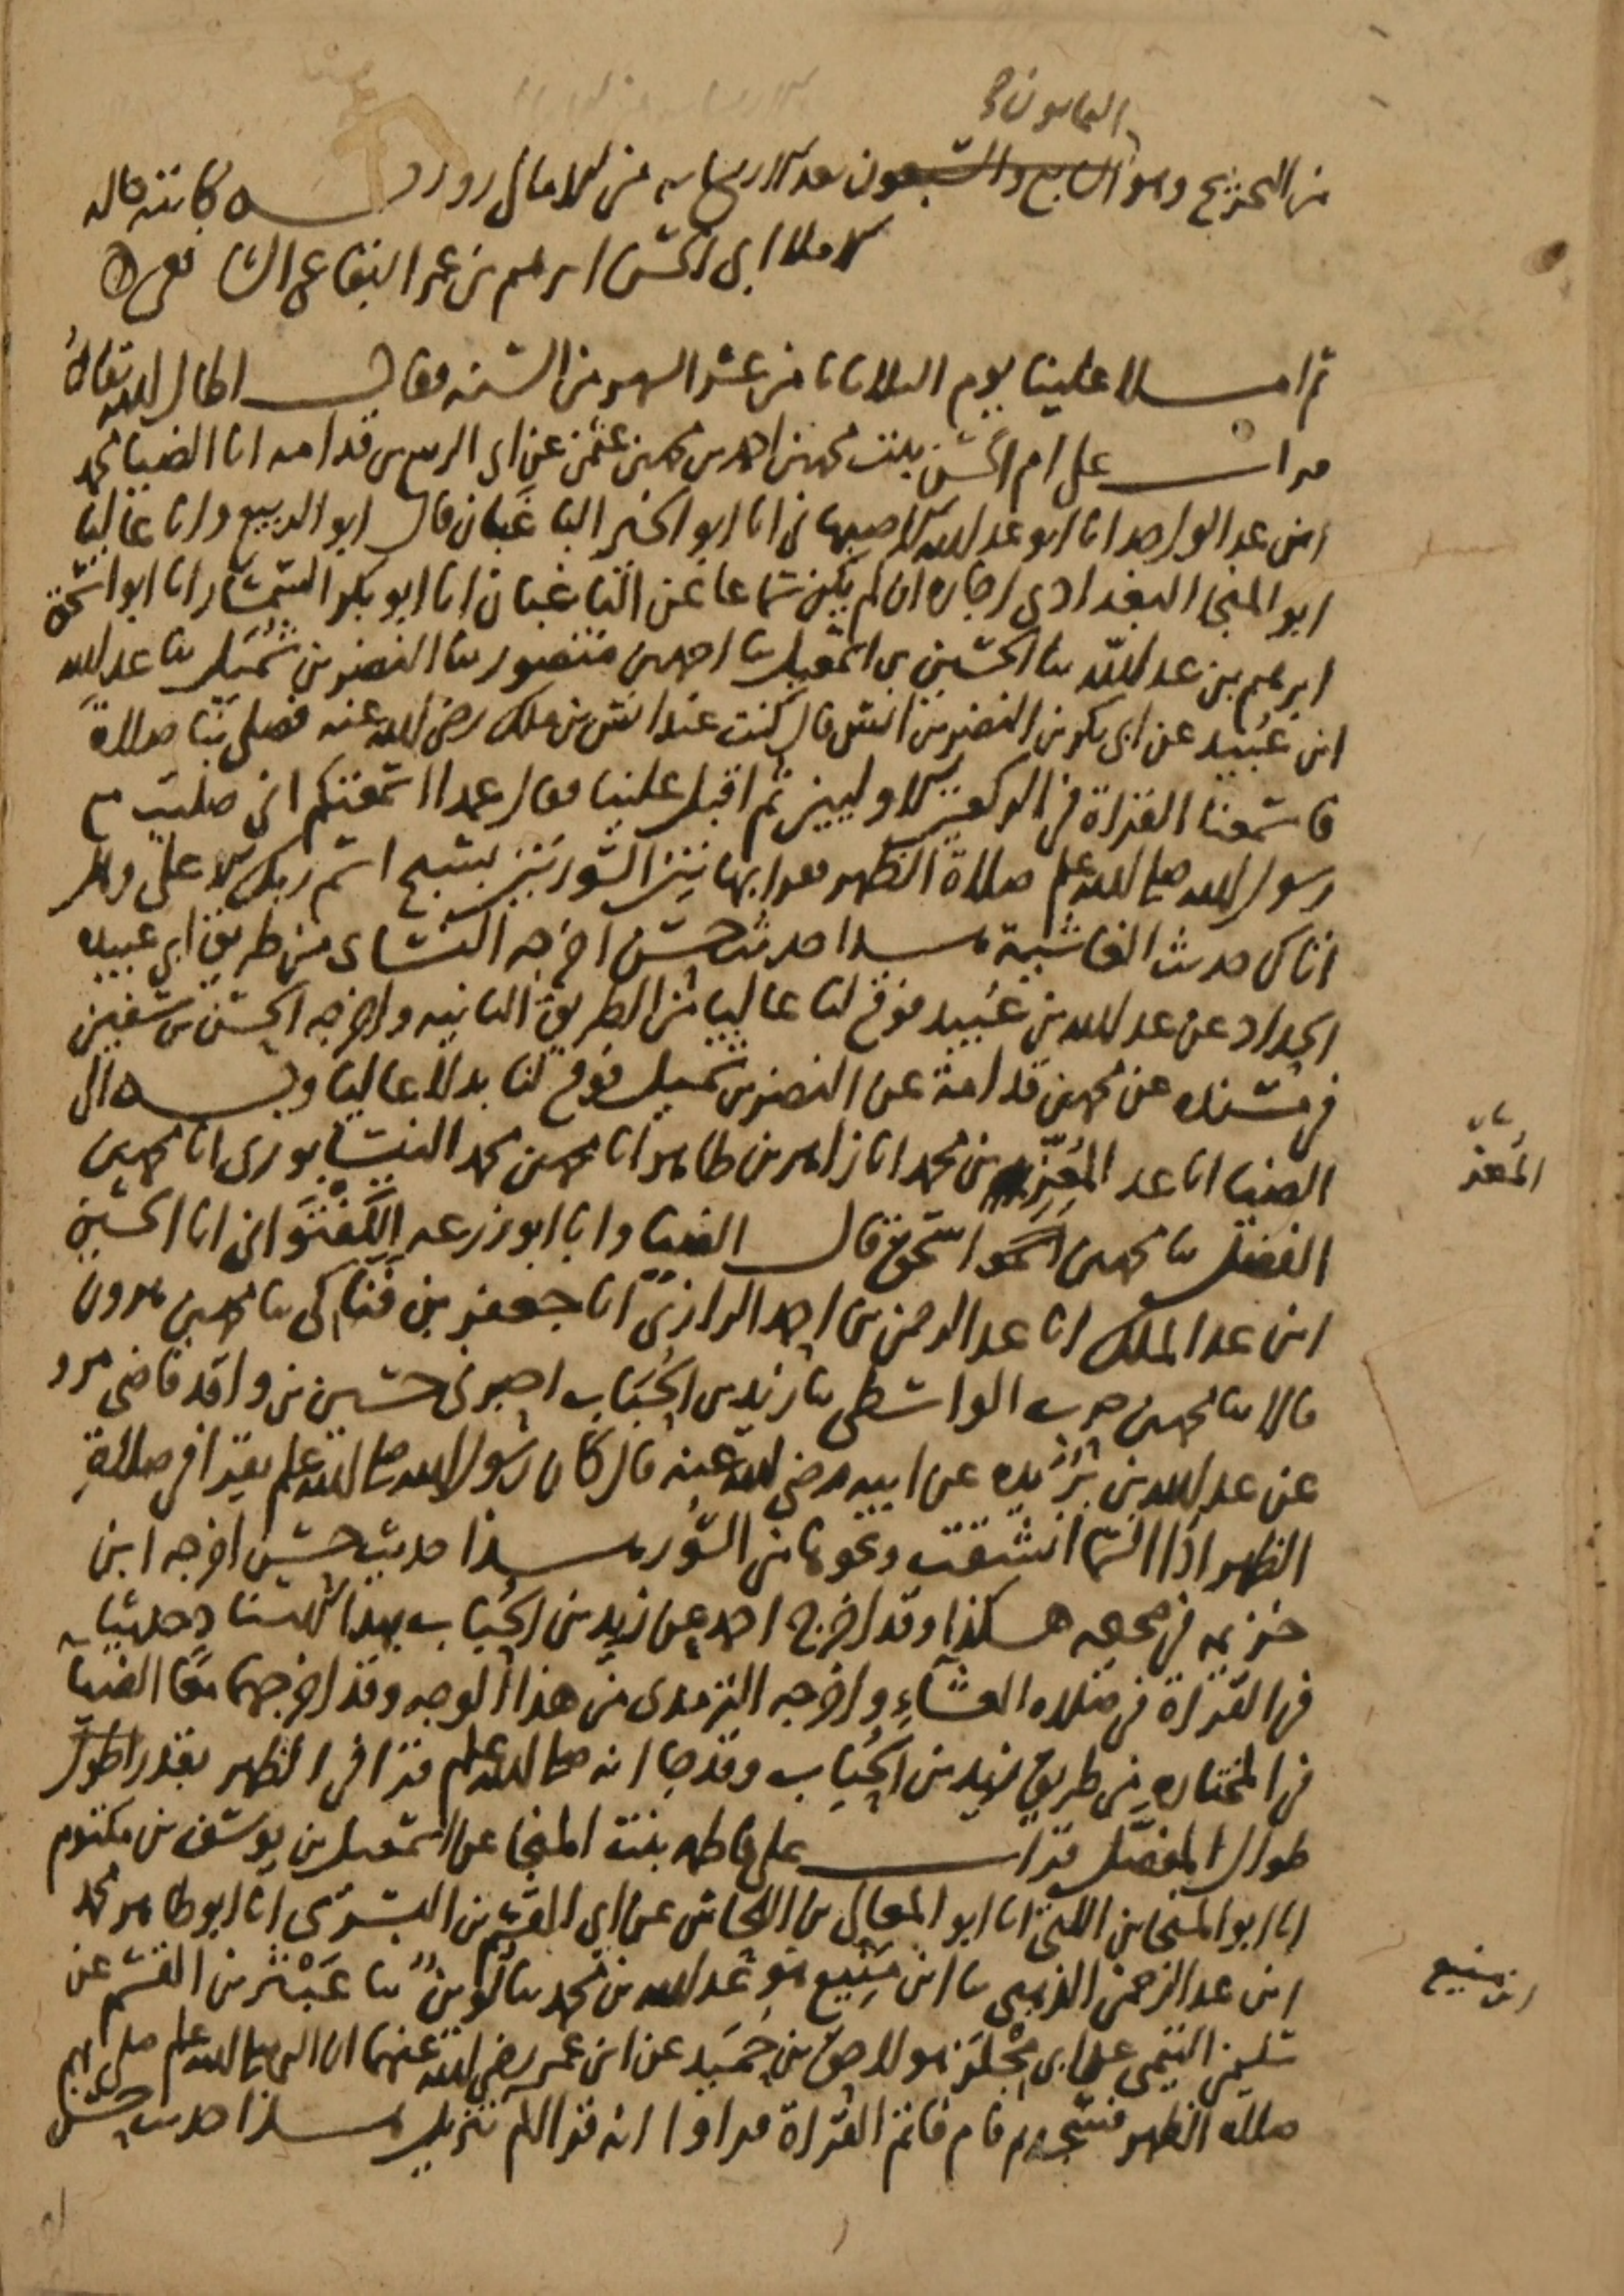 الثمانون
من التخريج وهو السابع والسبعون بعد الاربعمايه من الامالي رواية كاتبه قاله
لاملا ابي الحسن ابرهيم بن عمر البقاعي الشافعي
ثم املا علينا يوم الثلاثا ثامن عشر الشهر من السنه فقال اطال الله بقاه
قرات على ام الحسن بنت محمد بن احمد بن محمد بن عثمن عن ابي الربيع بن قدامه انا الضيا محمد
ابن عبد الواحد انا ابو عبد الله الاصبهاني انا ابو الخير الباغبان قال ابو الربيع وانا عاليا
ابو المنجا البغدادي اجازه ان لم يكن سماعا عن الباغبان انا ابو بكر السمسار انا ابو اسحق
ابرهيم بن عبد الله ثنا الحسين بن اسمعيل ثنا احمد بن منصور ثنا النضر بن شميل ثنا عبد الله
ابن عبيد عن ابي بكر بن النضر بن انس قال كنت عند انس بن ملك رضي الله عنه فصلى بنا صلاة
فاسمعنا القراة في الركعتين الاوليين ثم اقبل علينا فقال عمدا اسمعتكم اني صليت مع
رسول الله صلى الله عليه وسلم صلاة الظهر فقرا بهاتين السورتين بسبح اسم ربك الاعلى وهل
اتاك حديث الغاشية هذا حديث حسن اخرجه النسائي من طريق ابي عبيده
الحداد عن عبد الله بن عبيد فوقع لنا عاليا من الطريق الثانيه واخرجه الحسن بن سفين
في مسنده عن محمد بن قدامة عن النضر بن شميل فوقع لنا بدلا عاليا وبه الى
الضيا انا عبد المعز بن محمد انا زاهر بن طاهر انا محمد بن محمد النيسابوري انا محمد بن
المعز
الفضل ثنا محمد بن اسحق قال الضيا وانا ابو زرعه الكفتواني انا الحسين
ابن عبد الملك انا عبد الرحمن بن احمد الرازي انا جعفر بن فناكي ثنا محمد بن هرون
قالا ثنا محمد بن حرب الواسطي ثنا زيد بن الحباب اخبرني حسين بن واقد قاضي مرو
عن عبد الله بن بريده عن ابيه رضي الله عنه قال كان رسول الله صلى الله عليه وسلم يقرا في صلاة
الظهر اذا السما انشقت ونحوها من السور هذا حديث حسن اخرجه ابن
خزيمه في صحيحه هكذا وقد اخرج احمد عن زيد بن الحباب بهذا الاسناد حديثا
في القراة في صلاه العشاء واخرجه الترمذي من هذا الوجه وقد اخرجهما معا الضيا
في المختاره من طريق زيد بن الحباب وقد جا انه صلى الله عليه وسلم قرا في الظهر بقدر اطول
طوال المفصل قرات على فاطمه بنت المنجا عن اسمعيل بن يوسف بن مكتوم
انا ابو المنجا بن اللتي انا ابو المعالي بن اللحاس عن ابي القسم بن البسري انا ابو طاهر محمد
ابن عبد الرحمن الذهبي ثنا ابن منيع هو عبد الله بن محمد ثنا لوين ثنا عبثر بن القسم عن
ابن منيع
سليمن التيمي عن ابي مجلز هو لاحق بن حميد عن ابن عمر رضي الله عنهما ان النبي صلى الله عليه وسلم صلى بهم
صلاه الظهر فسجد ثم قام فاتم القراة فراوا انه قرا الم تنزيل هذا حديث حسن